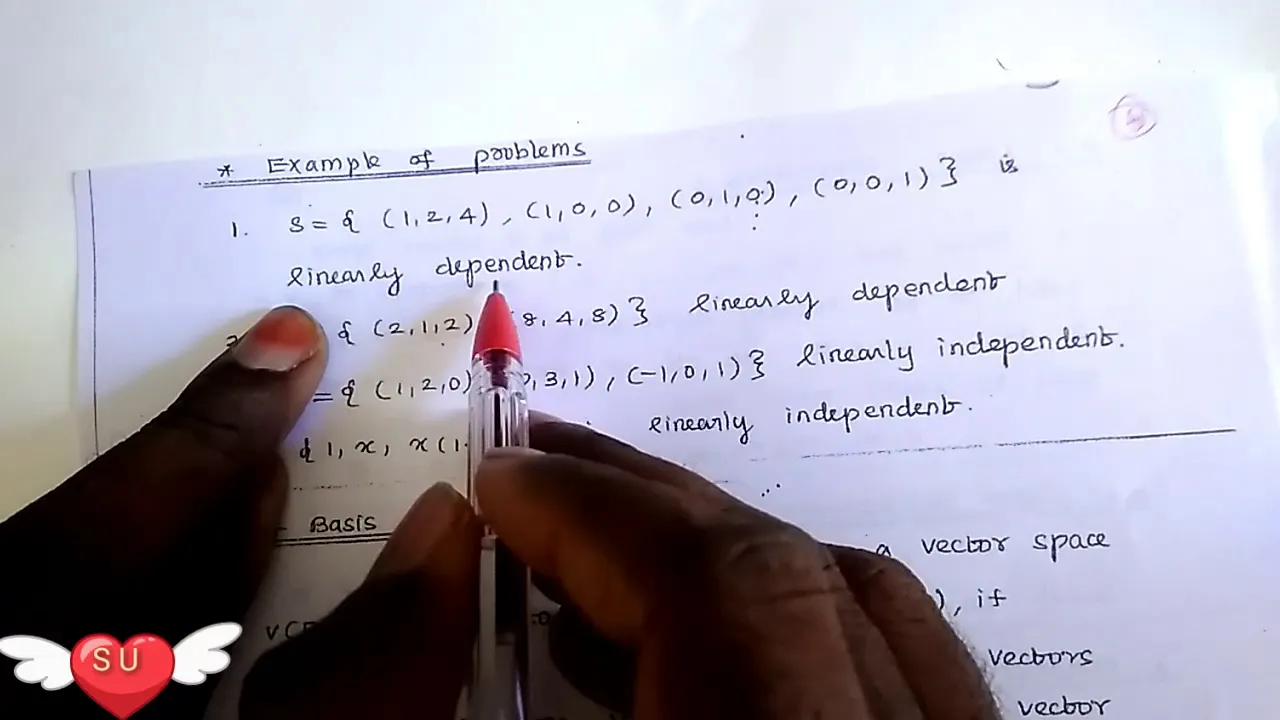 * Example of problems
1. S = { (1,2,4), (1,0,0), (0,1,0), (0,0,1) } is
linearly dependent.
{ (2,1,2) 8,4,8) } linearly dependent
= { (1,2,0) ,3,1), (-1,0,1) } linearly independent.
{ 1, x, x(1- linearly independent.
Basis
a vector space
), if
vectors
vector
SU